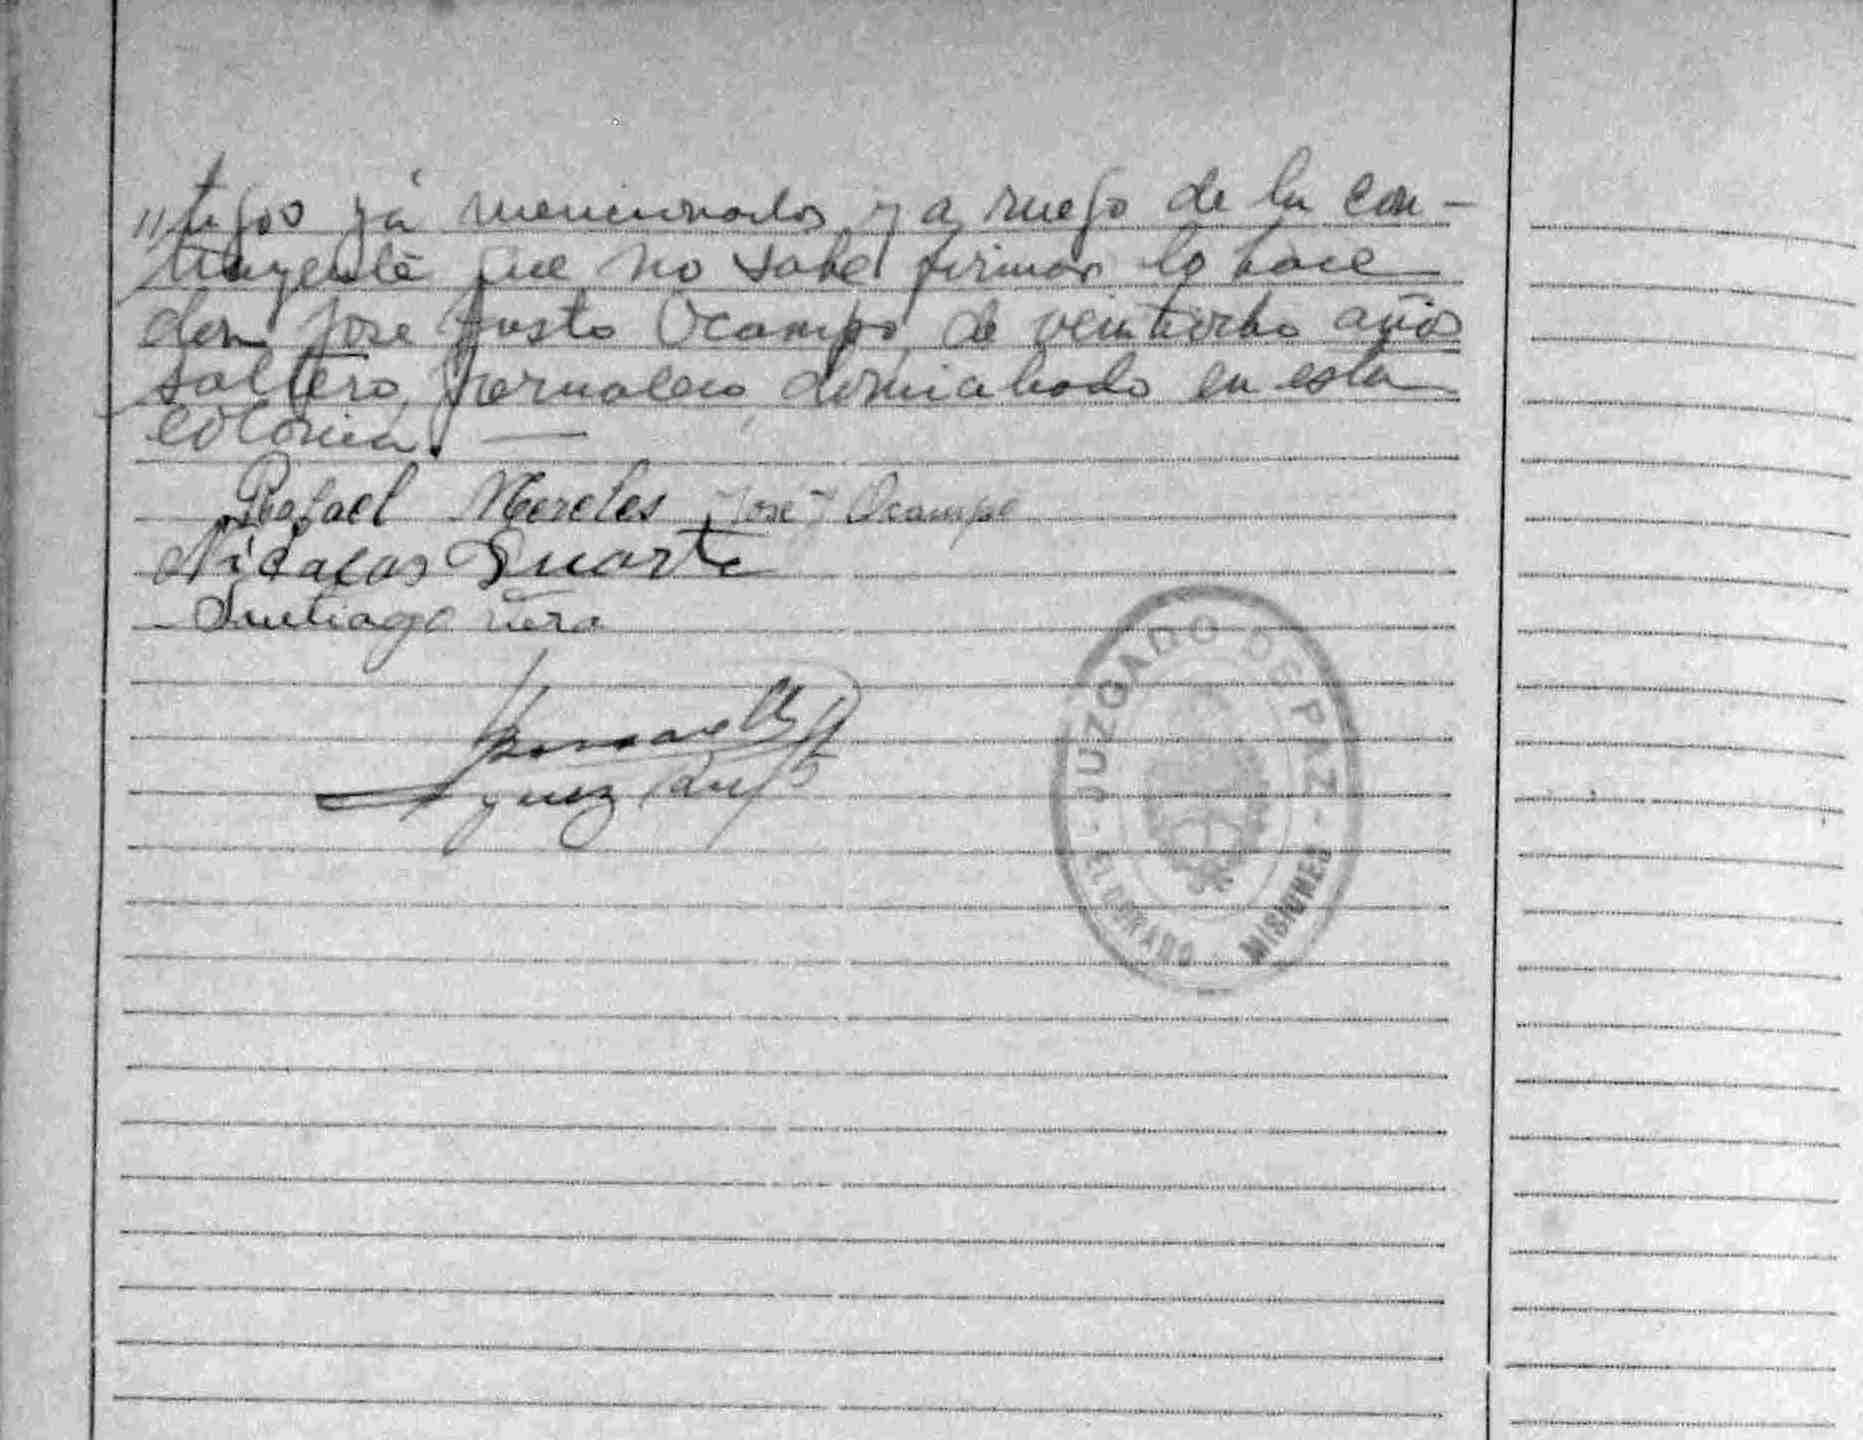 "tigos yá mencionados y a ruego de la con-
trayente que no sabe firmar lo hace
don José Justo Ocampo, de veintiocho años
soltero, jornalero, domiciliado en esta
colonia. —
Rafael Mereles José J Ocampo
Nicolas Duarte
Santiago Vera
Juez
JUZGADO DE PAZ
ELDORADO - MISIONES